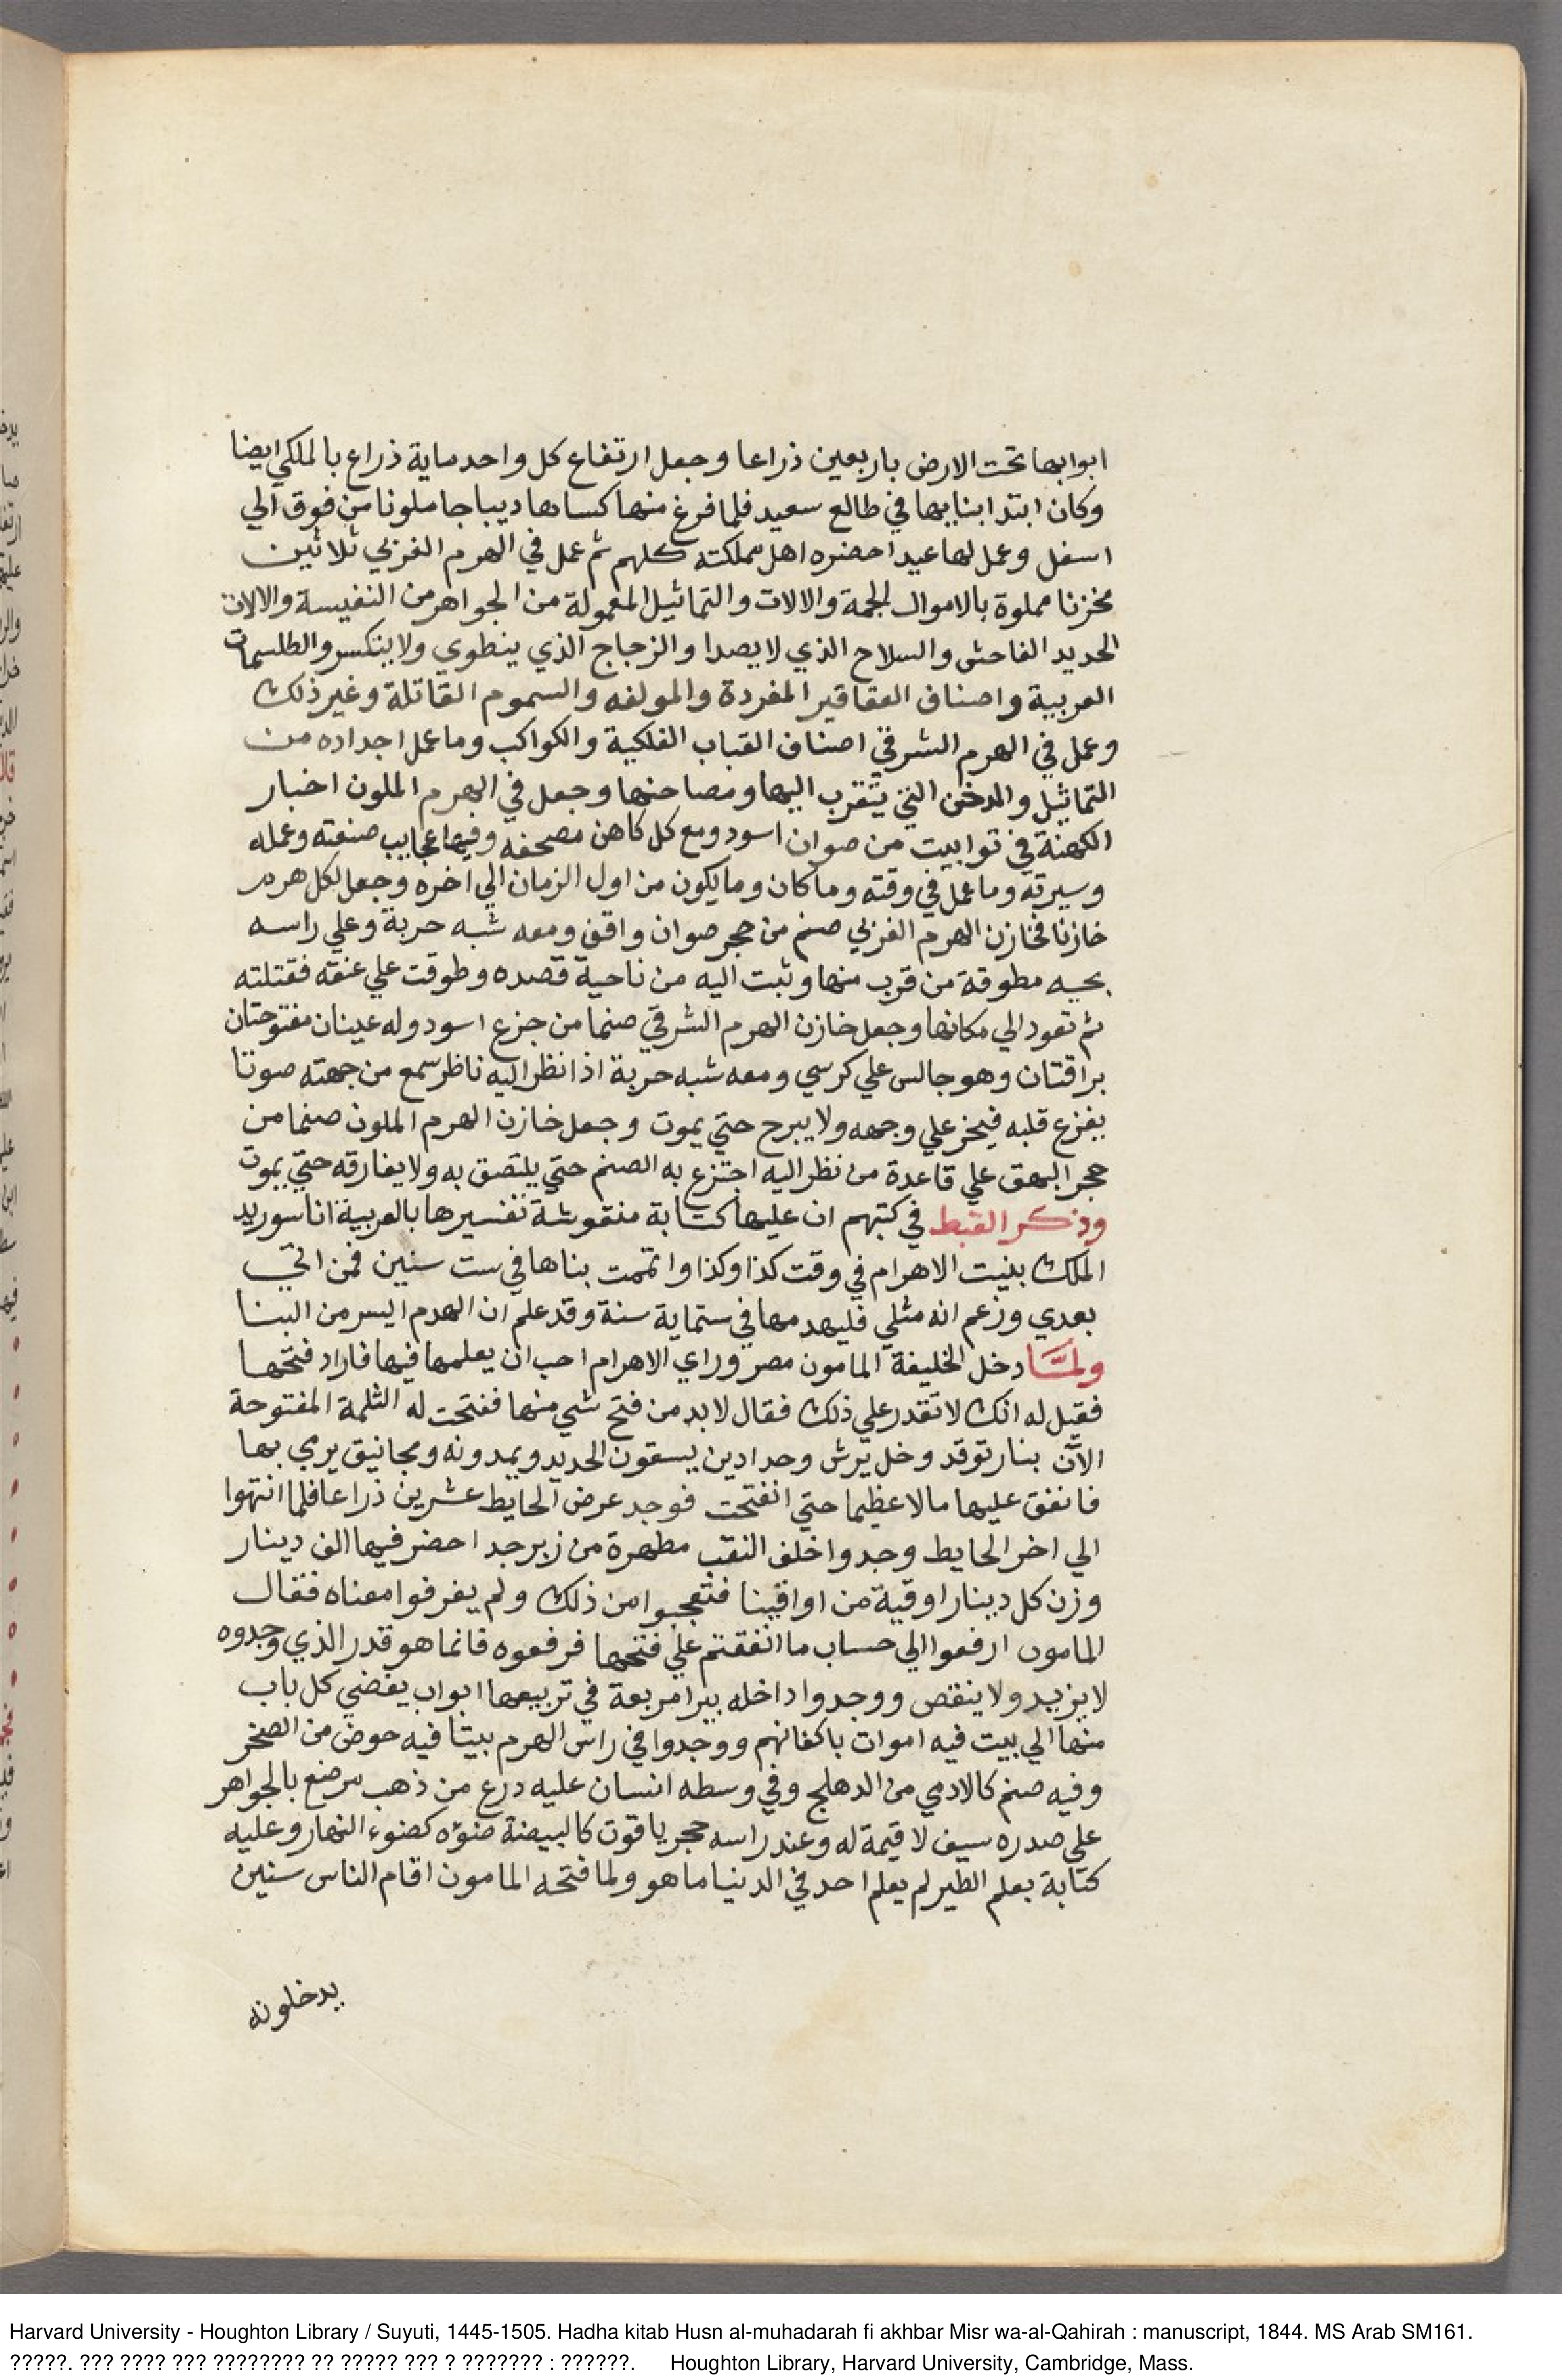 ابوابها تحت الارض باربعين ذراعا وجعل ارتفاع كل واحد ماية ذراع بالملكي ايضا
وكان ابتدا بنايها في طالع سعيد فلما فرغ منها كساها ديباجا ملونا من فوق الي
اسفل وعمل لها عيدا حضره اهل مملكته كلهم ثم عمل في الهرم الغربي ثلاثين
مخزنا مملوة بالاموال الجمة والالات والتماثيل المعمولة من الجواهر من النفيسة والالات
الحديد الفاحش والسلاح الذي لا يصدا والزجاج الذي ينطوي ولا ينكسر والطلسمات
العربية واصناف العقاقير المفردة والمولفه والسموم القاتلة وغير ذلك
وعمل في الهرم الشرقي اصناف القباب الفلكية والكواكب وما عمل اجداده من
التماثيل والدخن التي يتقرب اليها ومصاحنها وجعل في الهرم الملون اخبار
الكهنة في توابيت من صوان اسود ومع كل كاهن مصحفه وفيها عجايب صنعته وعمله
وسيرته وما عمل في وقته وما كان وما يكون من اول الزمان الي اخره وجعل لكل هرم
خازنا فخازن الهرم الغربي صنم من حجر صوان واقف ومعه شبه حربة وعلي راسه
حيه مطوقة من قرب منها وثبت اليه من ناحية قصده وطوقت علي عنقه فقتلته
ثم تعود الي مكانها وجعل خازن الهرم الشرقي صنما من جزع اسود وله عينان مفتوحتان
براقتان وهو جالس علي كرسي ومعه شبه حربة اذا نظر اليه ناظر سمع من جهته صوتا
يفزع قلبه فيخر علي وجهه ولا يبرح حتي يموت وجعل خازن الهرم الملون صنما من
حجر البهق علي قاعدة من نظر اليه اجتزع به الصنم حتي يلتصق به ولا يفارقه حتي يموت
وذكر القبط في كتبهم ان عليها كتابة منقوشة تفسيرها بالعربية انا سوريد
الملك بنيت الاهرام في وقت كذا وكذا واتممت بناها في ست سنين فمن اتي
بعدي وزعم انه مثلي فليهدمها في ستماية سنة وقد علم ان الهدم اليسر من البنا
ولما دخل الخليفة المامون مصر وراي الاهرام احب ان يعلم ما فيها فاراد فتحها
فقيل له انك لا تقدر علي ذلك فقال لابد من فتح شي منها ففتحت له الثلمة المفتوحة
الآن بنار توقد وخل يرش وحدادين يسقون الحديد ويمدونه ومجانيق يرمي بها
فانفق عليها مالا عظيما حتي انفتحت فوجد عرض الحايط عشرين ذراعا فلما انتهوا
الي اخر الحايط وجدوا خلف النقب مطهرة من زبرجد احضر فيها الف دينار
وزن كل دينار اوقية من اواقينا فتعجبوا من ذلك ولم يعرفوا معناه فقال
المامون ارفعوا الي حساب ما انفقتم علي فتحها فرفعوه فانما هو قدر الذي وجدوه
لا يزيد ولا ينقص ووجدوا داخله بيرا مربعة في تربيعها ابواب يفضي كل باب
منها الي بيت فيه اموات باكفانهم ووجدوا في راس الهرم بيتا فيه حوض من الصخر
وفيه صنم كالادمي من الدهلج وفي وسطه انسان عليه درع من ذهب مرصع بالجواهر
علي صدره سيف لا قيمة له وعند راسه حجر ياقوت كالبيضة ضوؤه كضوء النهار وعليه
كتابة بعلم الطير لم يعلم احد في الدنيا ما هو ولما فتحه المامون اقام الناس سنين
يدخلونه
Harvard University - Houghton Library / Suyuti, 1445-1505. Hadha kitab Husn al-muhadarah fi akhbar Misr wa-al-Qahirah : manuscript, 1844. MS Arab SM161.
?????. ??? ???? ??? ???????? ?? ????? ??? ? ??????? : ??????. Houghton Library, Harvard University, Cambridge, Mass.